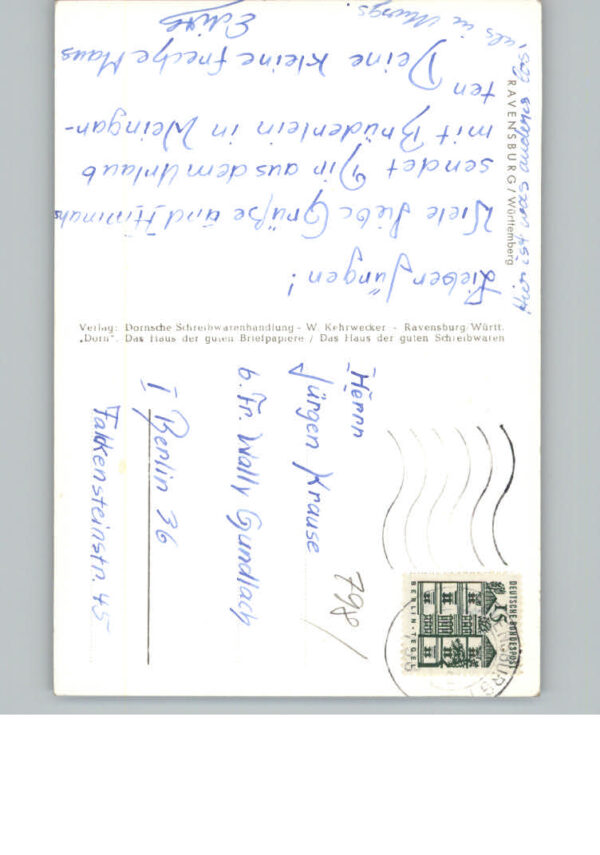 RAVENSBURG/Württemberg
Lieber Jürgen!
Viele liebe Grüße und
sendet Dir aus dem Urlaub
mit Brüderlein in Weingar-
ten
Deine kleine freche Maus
Hier ist was anderes los,
als in
Verlag: Dornsche Schreibwarenhandlung - W. Kehrwecker - Ravensburg Württ.
„Dorn". Das Haus der guten Briefpapiere / Das Haus der guten Schreibwaren
Herrn
Jürgen Krause
b. Fr. Wally Gundlach
1 Berlin 36
Falkensteinstr. 45
798/
DEUTSCHE BUNDESPOST
15
BERLIN-TEGEL